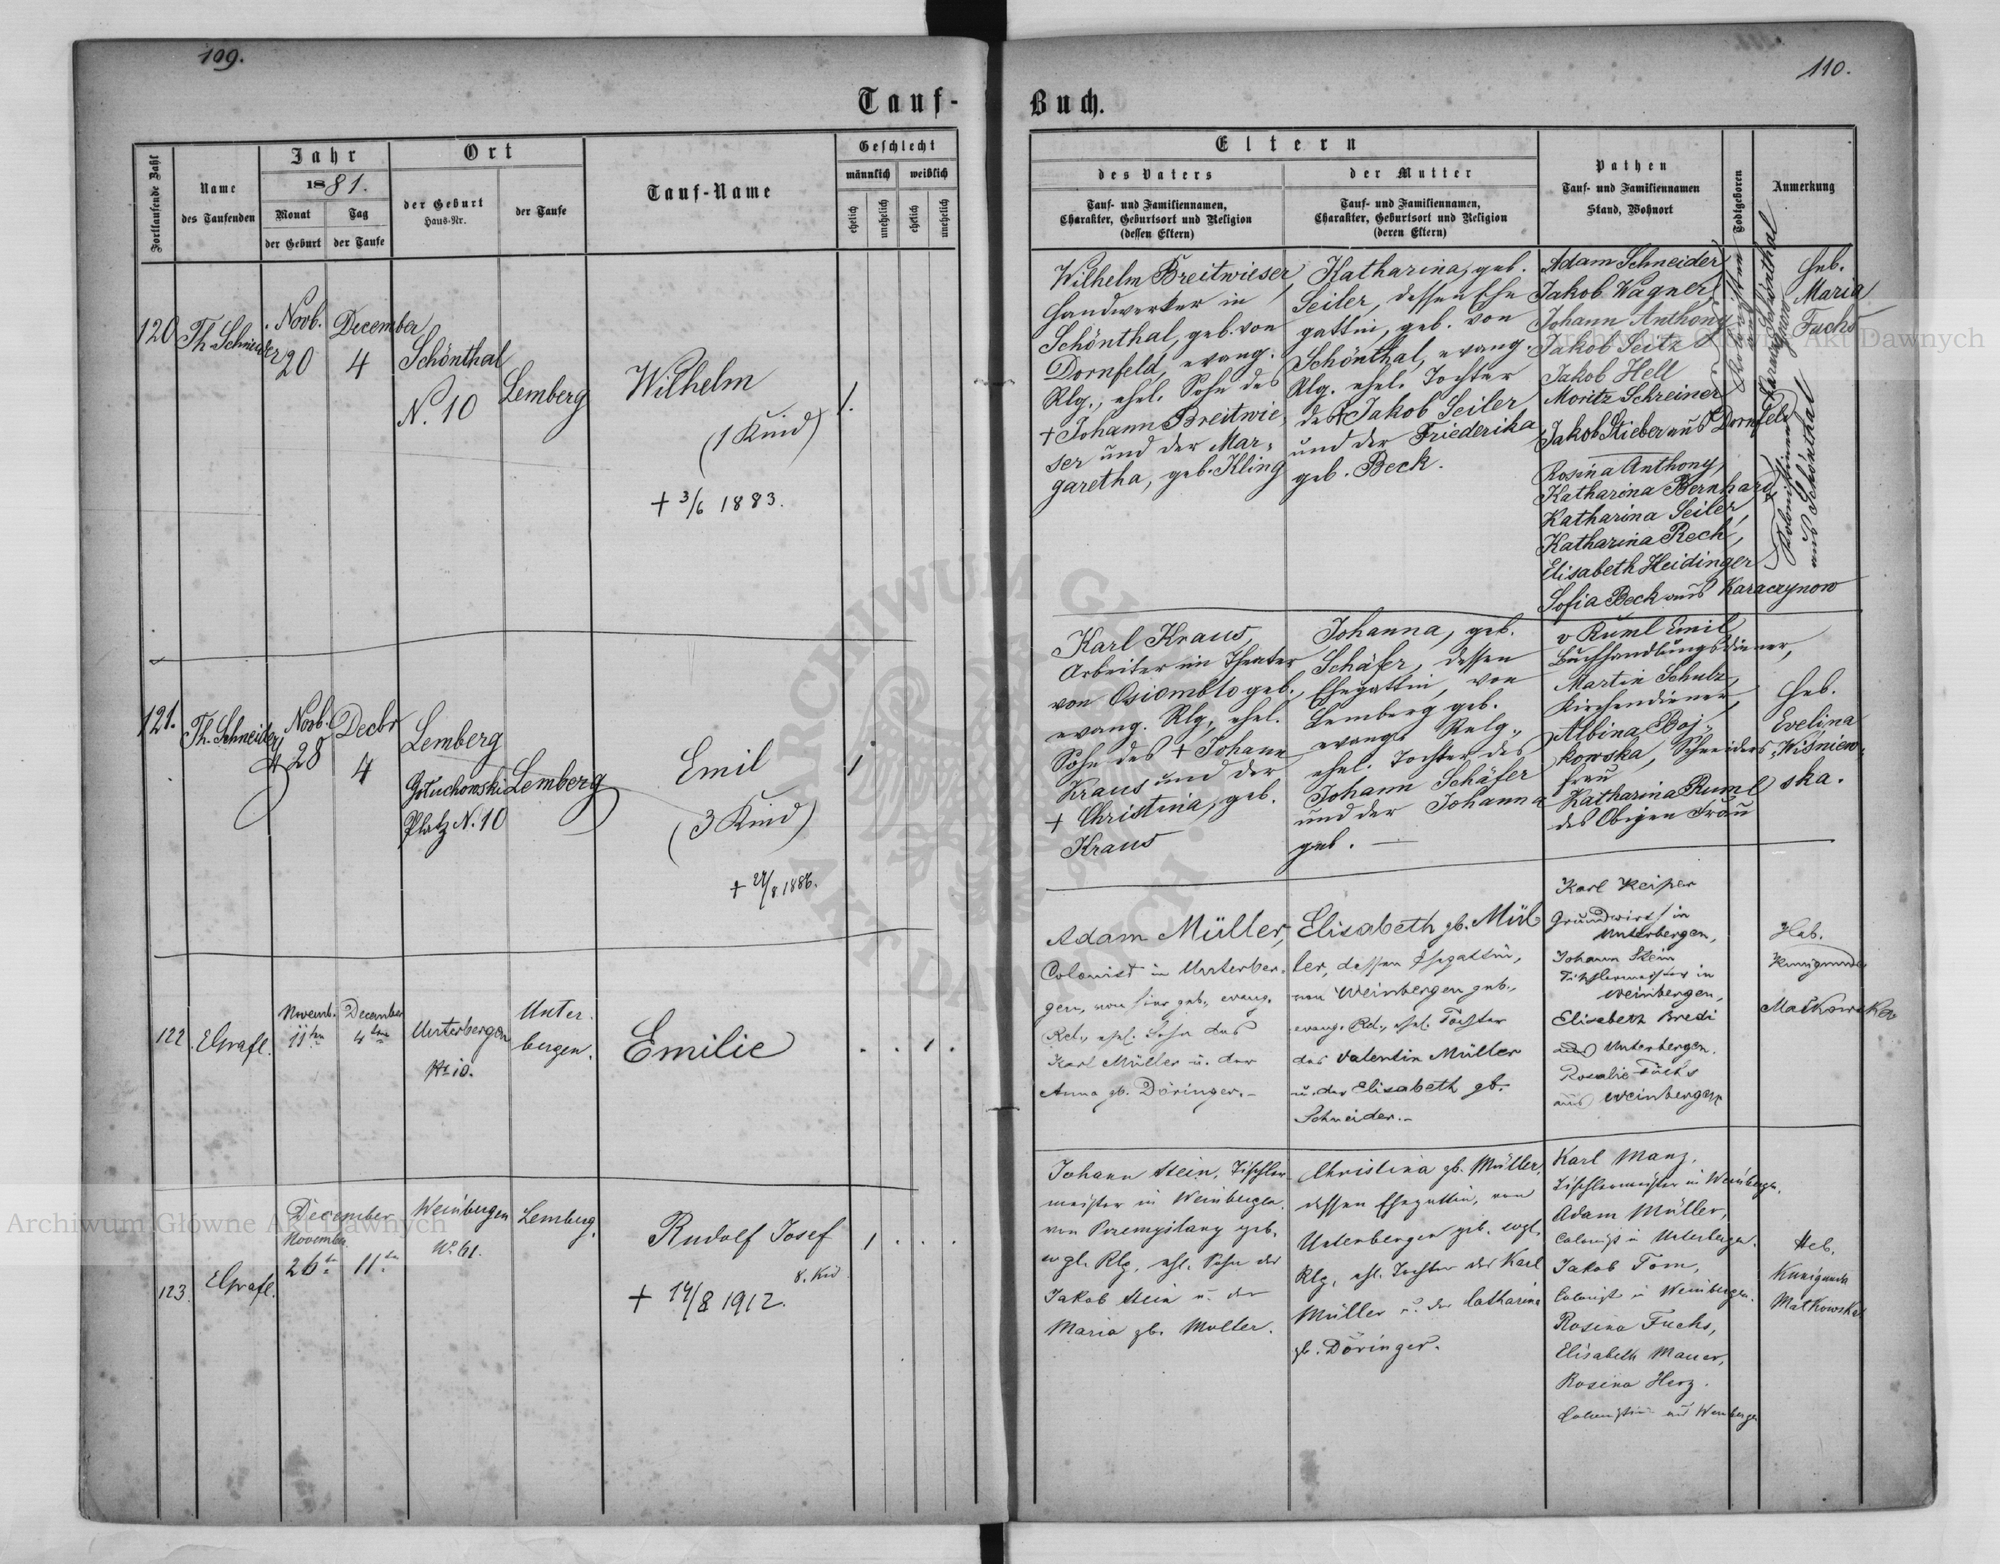 109.
110.
Tauf-
Buch.
Fortlaufende Zahl
Name
des Taufenden
Jahr
1881.
Monat
der Geburt
Tag
der Taufe
Ort
der Geburt
Haus-Nr.
der Taufe
Tauf-Name
Geschlecht
männlich
weiblich
ehelich
unehelich
ehelich
unehelich
Eltern
des Vaters
Tauf- und Familiennamen,
Charakter, Geburtsort und Religion
(dessen Eltern)
der Mutter
Tauf- und Familiennamen,
Charakter, Geburtsort und Religion
(deren Eltern)
Pathen
Tauf- und Familiennamen
Stand, Wohnort
Todtgeboren
Anmerkung
120
Th. Schneider
Novb.
20
December
4
Schönthal
N. 10
Lemberg
Wilhelm
(1 Kind)
+ 3/6 1883.
1.
Wilhelm Breitwieser,
Handwerker in
Schönthal, geb. von
Dornfeld, evang.
Rlg., ehel. Sohn des
+ Johann Breitwie-
ser und der Mar-
garetha, geb. Kling
Katharina, geb.
Seiler, dessen Ehe
gattin, geb. von
Schönthal, evang.
Rlg. ehel. Tochter
des + Jakob Seiler
und der Friederika
geb. Beck.
Adam Schneider,
Jakob Wagner,
Johann Anthony
Jakob Seitz
Jakob Hell
Moritz Schreiner
Jakob Stieber aus Dornfeld
Rosina Anthony,
Katharina Bernhard,
Katharina Seiler,
Katharina Rech,
Elisabeth Heidinger
Sofia Beck aus Karaczynow
Kolonisten
Schönthal
Karaczynow
Kolonistinnen
aus Schönthal
Heb.
Maria
Fuchs
121.
Th. Schneider
Novb.
28
Decbr
4
Lemberg
Gołuchowski
Platz N. 10
Lemberg
Emil
(3 Kind)
+ 27/8 1886.
1
Karl Kraus,
Arbeiter im Theater
von geb.,
evang. Rlg., ehel.
Sohn des + Johann
Kraus und der
+ Christina, geb.
Kraus
Johanna, geb.
Schäfer, dessen
Ehegattin, von
Lemberg geb.
evang. Relg.,
ehel. Tochter des
Johann Schäfer
und der Johanna
geb. —
v Ruml Emil
Buchhandlungsdiener,
Martin Schulz,
Kirchendiener,
Albina Boj-
kowska, Schneiders
frau
Katharina Ruml
des Obigen Frau
Heb.
Evelina
Wiśniew-
ska.
122.
EGrafl.
Novemb.
11ten
December
4ten
Unterbergen
Nr 10.
Unter-
bergen.
Emilie
. . 1 .
Adam Müller,
Colonist in Unterber-
gen, von hier geb., evang.
Rel., ehel. Sohn des
Karl Müller u. der
Anna gb. Döringer.-
Elisabeth gb. Mül
ler, dessen Ehegattin,
von Weinbergen geb.,
evang. Rel., ehel. Tochter
des Valentin Müller
u. der Elisabeth gb.
Schneider.-
Karl Keiper
Grundwirt in
Unterbergen,
Johann Stein
Tischlermeister in
Weinbergen,
Elisabeth Bredi
aus Unterbergen.
Rosalie Fuchs
aus Weinbergen
Heb.
Kunigunde
Małkowska
123.
EGrafl.
December
Novembr.
26te
11ten
Weinbergen
Nr 61.
Lemberg.
Rudolf Josef
8. Kind
+ 14/8 1912.
1 . . .
Johann Stein, Tischler
meister in Weinbergen,
von Przemyslany geb.
evgl. Rlg., ehl. Sohn des
Jakob Stein u. der
Maria gb. Molter.
Christina gb. Müller,
dessen Ehegattin, von
Unterbergen geb. evgl.
Rlg., ehl. Tochter des Karl
Müller u. der Catharina
gb. Döringer.
Karl Manz,
Tischlermeister in Weinbergen.
Adam Müller,
Colonist in Unterbergen.
Jakob Tom,
Colonist in Weinbergen.
Rosina Fuchs,
Elisabeth Mauer,
Rosina Herz.
Colonistin aus Weinbergen
Heb.
Kunigunda
Małkowska
Archiwum Główne Akt Dawnych
Archiwum Główne Akt Dawnych
ARCHIWUM GŁÓWNE AKT DAWNYCH